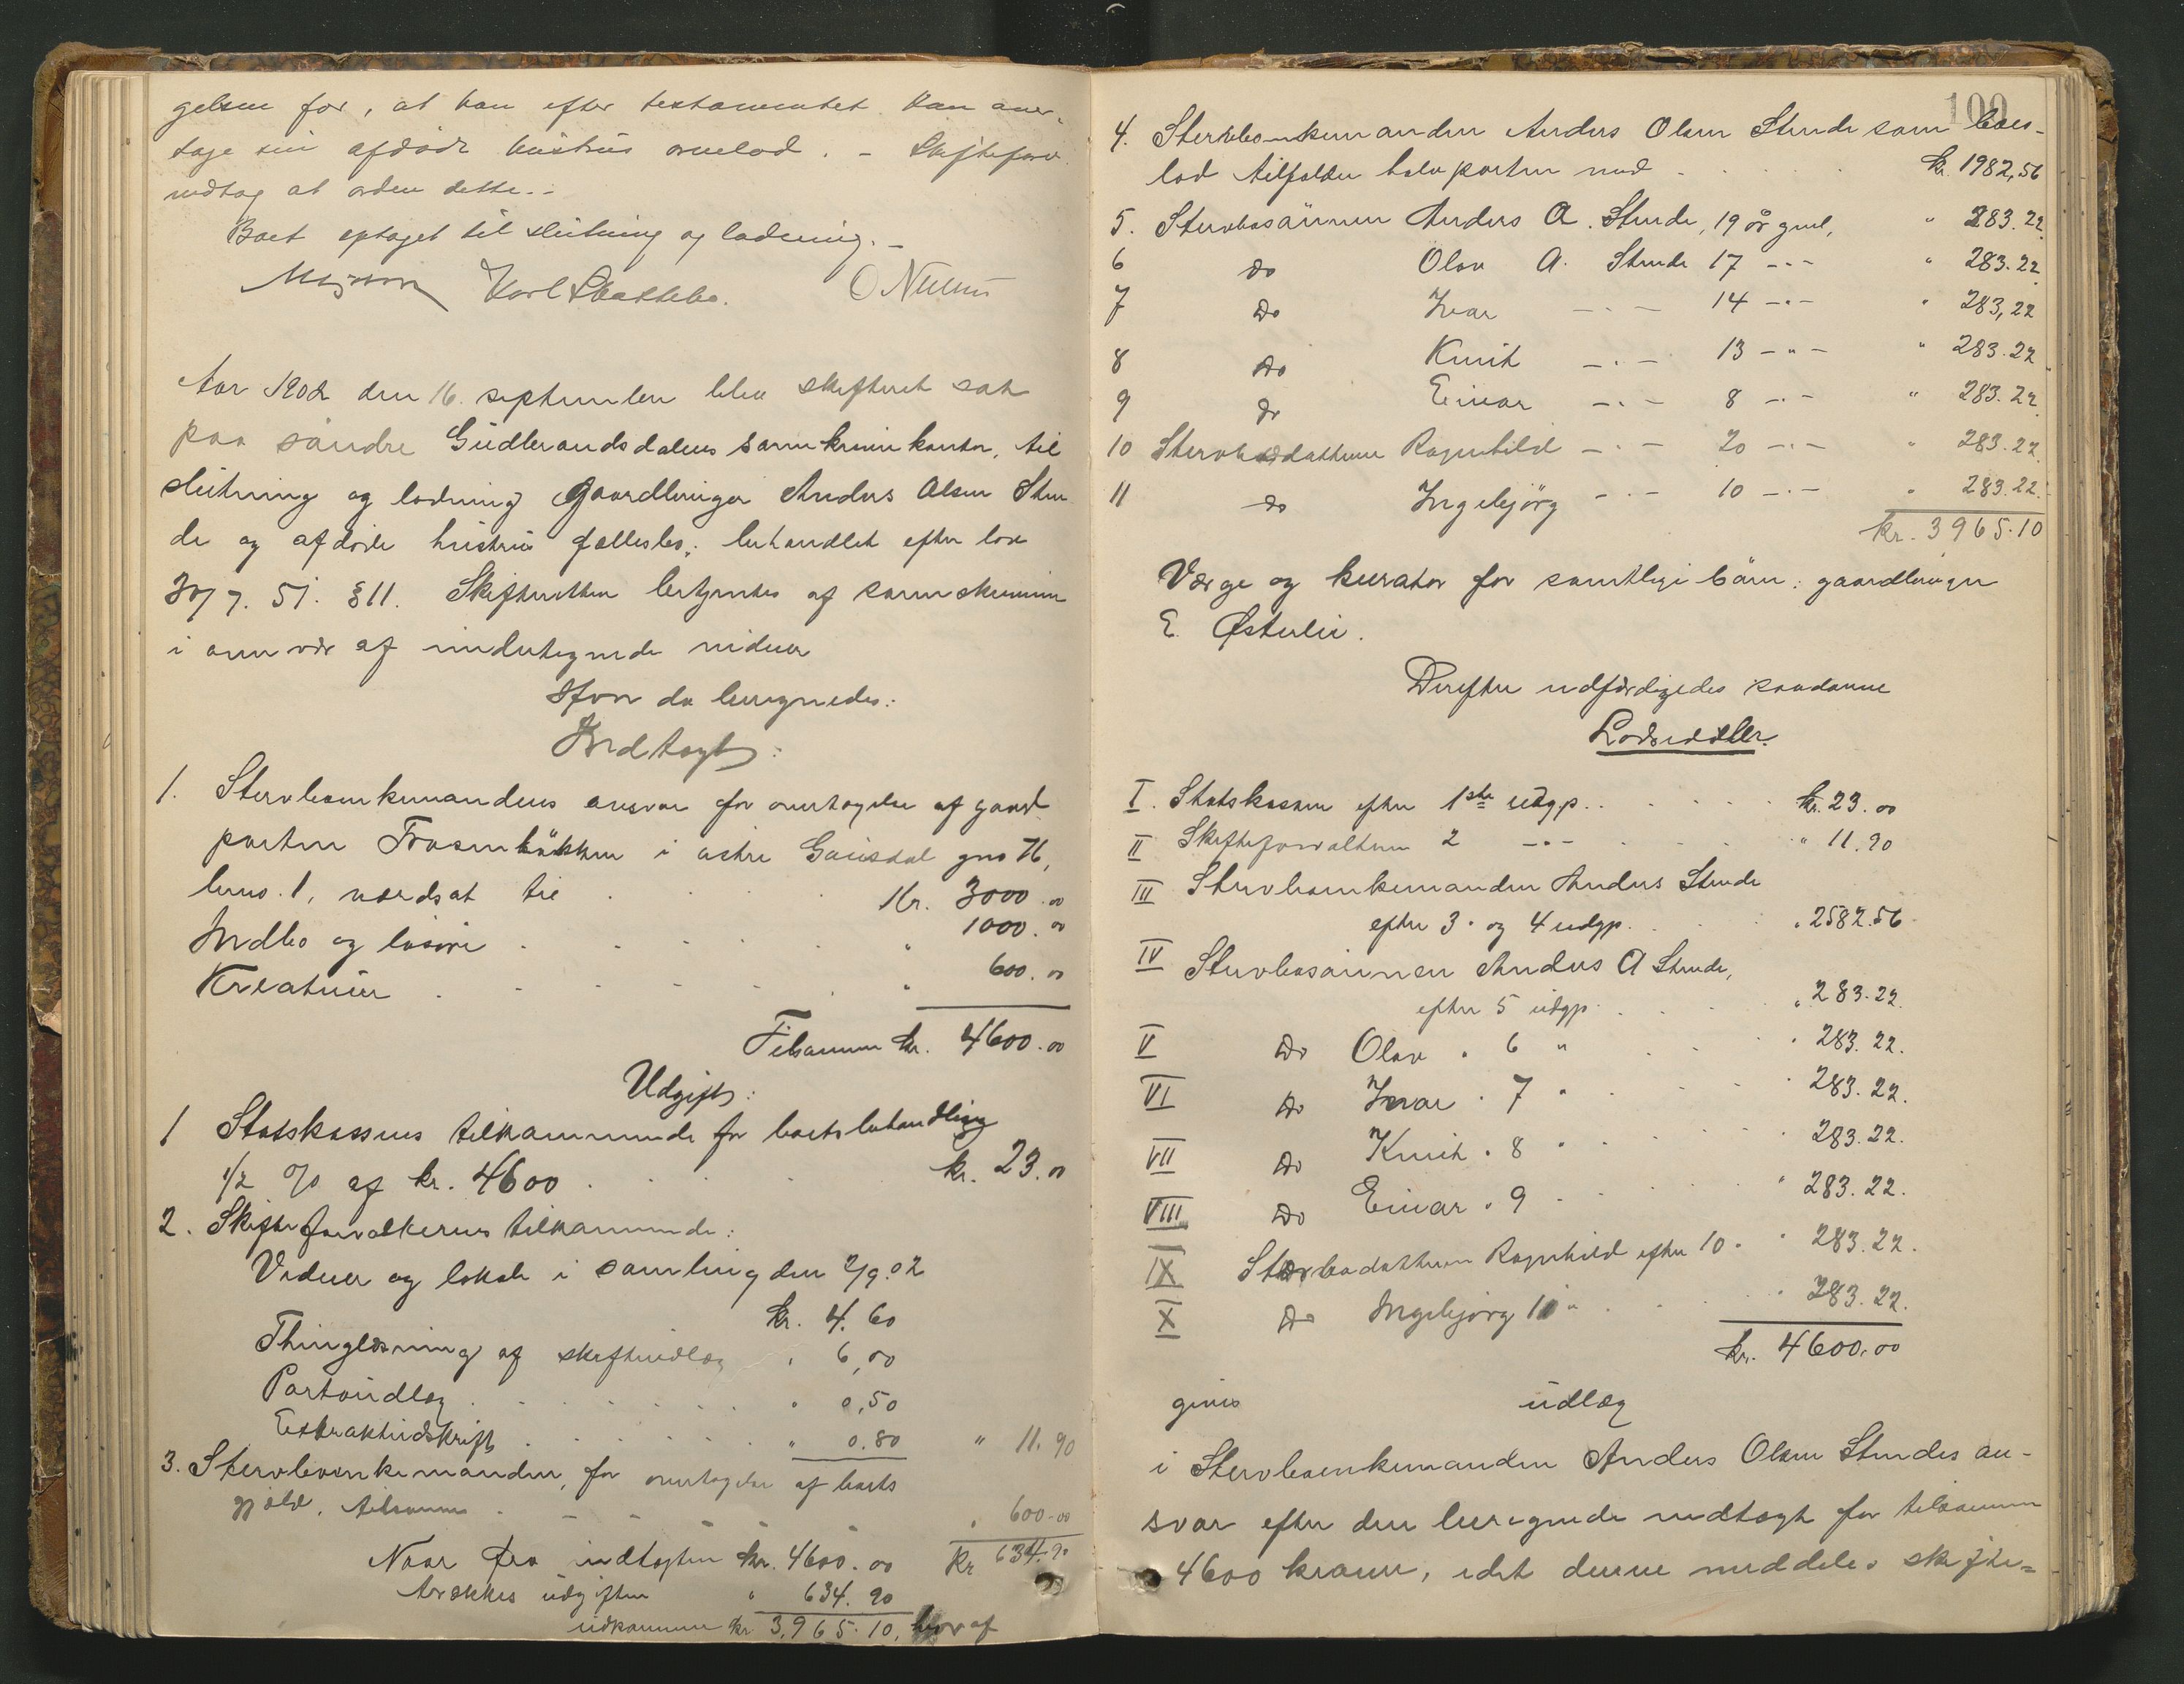 gelsen for, at han efter testamentet kan over-
tage sin afdøde hustrus arvelod. - Skifteforv.
vedtog at ordne dette.-
Boet optaget til slutning og lodning.-
Karl O
Aar 1902 den 16. september blev skifteret sat
paa søndre Gudbrandsdalens sorenskriverkontor, til
slutning og lodning i gaardbruger Anders Olsen Stu-
de og afdøde hustrus fællesbo, behandlet efter lov
30/7. 51. § 11. Skifteretten betjentes af sorenskriveren
i overvær af undertegnede vidner
Hvor da beregnedes:
Indtægt:
1. Stervboenkemandens ansvar for overtagelse af gaard-
parten Frosenbakken i østre Gausdal gno 76,
bno. 1, værdsat til . . . Kr. 3000.00
Indbo og løsøre . . . . . " 1000.00
Kreaturer . . . . . " 600.00
Tilsammen kr. 4600.00
Udgift:
1 Statskassens tilkommende for boets behandling
1/2 % af kr. 4600 . . . kr. 23.00
2. Skifteforvalterens tilkommende:
Vidner og lokale i samling den 2/9.02
kr. 4.60
Thinglæsning af skifteudlæg " 6,00
Portoudlæg . . . . . . " 0,50
Extraktudskrift . . . . . . " 0.80 " 11.90
3. Stervboenkemanden, for overtagelse af boets
gjæld, tilsammen . . . . . " 600.00
Kr 634.90
Naar fra indtægten kr. 4600.00
trækkes udgiften " 634.90
udkommer kr 3.965.10, hvoraf
100
4. Stervboenkemanden Anders Olsen Stude som boes-
lod tilfalder halvparten med . . . . kr. 1982,56
5. Stervbosønnen Anders A. Stude, 19 år gml, " 283.22
6 do Olav A. Stude 17 - " - " 283.22
7 do Ivar - " - 14 - " - " 283,22
8 do Knut - " - 13 - " - " 283.22
9 do Einar - " - 8 - " - " 283.22
10 Stervbodatteren Ragnhild - " - 20 - " - " 283.22
11 do Ingebjørg - " - 10 - " - " 283.22
kr. 3965.10
Værge og kurator for samtlige børn: gaardbruger
E. Østerlie.
Derefter udfærdigedes saadanne
Lodsedler.
I. Statskassen efter 1ste udgp. . . . . kr. 23.00
II Skifteforvalteren 2 - " - . . . " 11.90
III Stervboenkemanden Anders Stude
efter 3. og 4 udgp. . . . " 2582.56
IV Stervbosønnen Anders A Stude,
efter 5 udgp. . . . " 283.22.
V Do Olav " 6 " . . . " 283.22.
VI Do Ivar " 7 " . . . " 283.22.
VII Do Knut " 8 " . . . " 283.22.
VIII Do Einar " 9 . . . " 283.22.
IX Stervbodatteren Ragnhild efter 10 " " 283.22.
X Do Ingebjørg 11 " . . . " 283.22.
kr. 4600.00
gives udlæg
i Stervboenkemanden Anders Olsen Studes an-
svar efter den beregnede indtægt for tilsammen
4600 kroner, idet denne meddeles skifte=